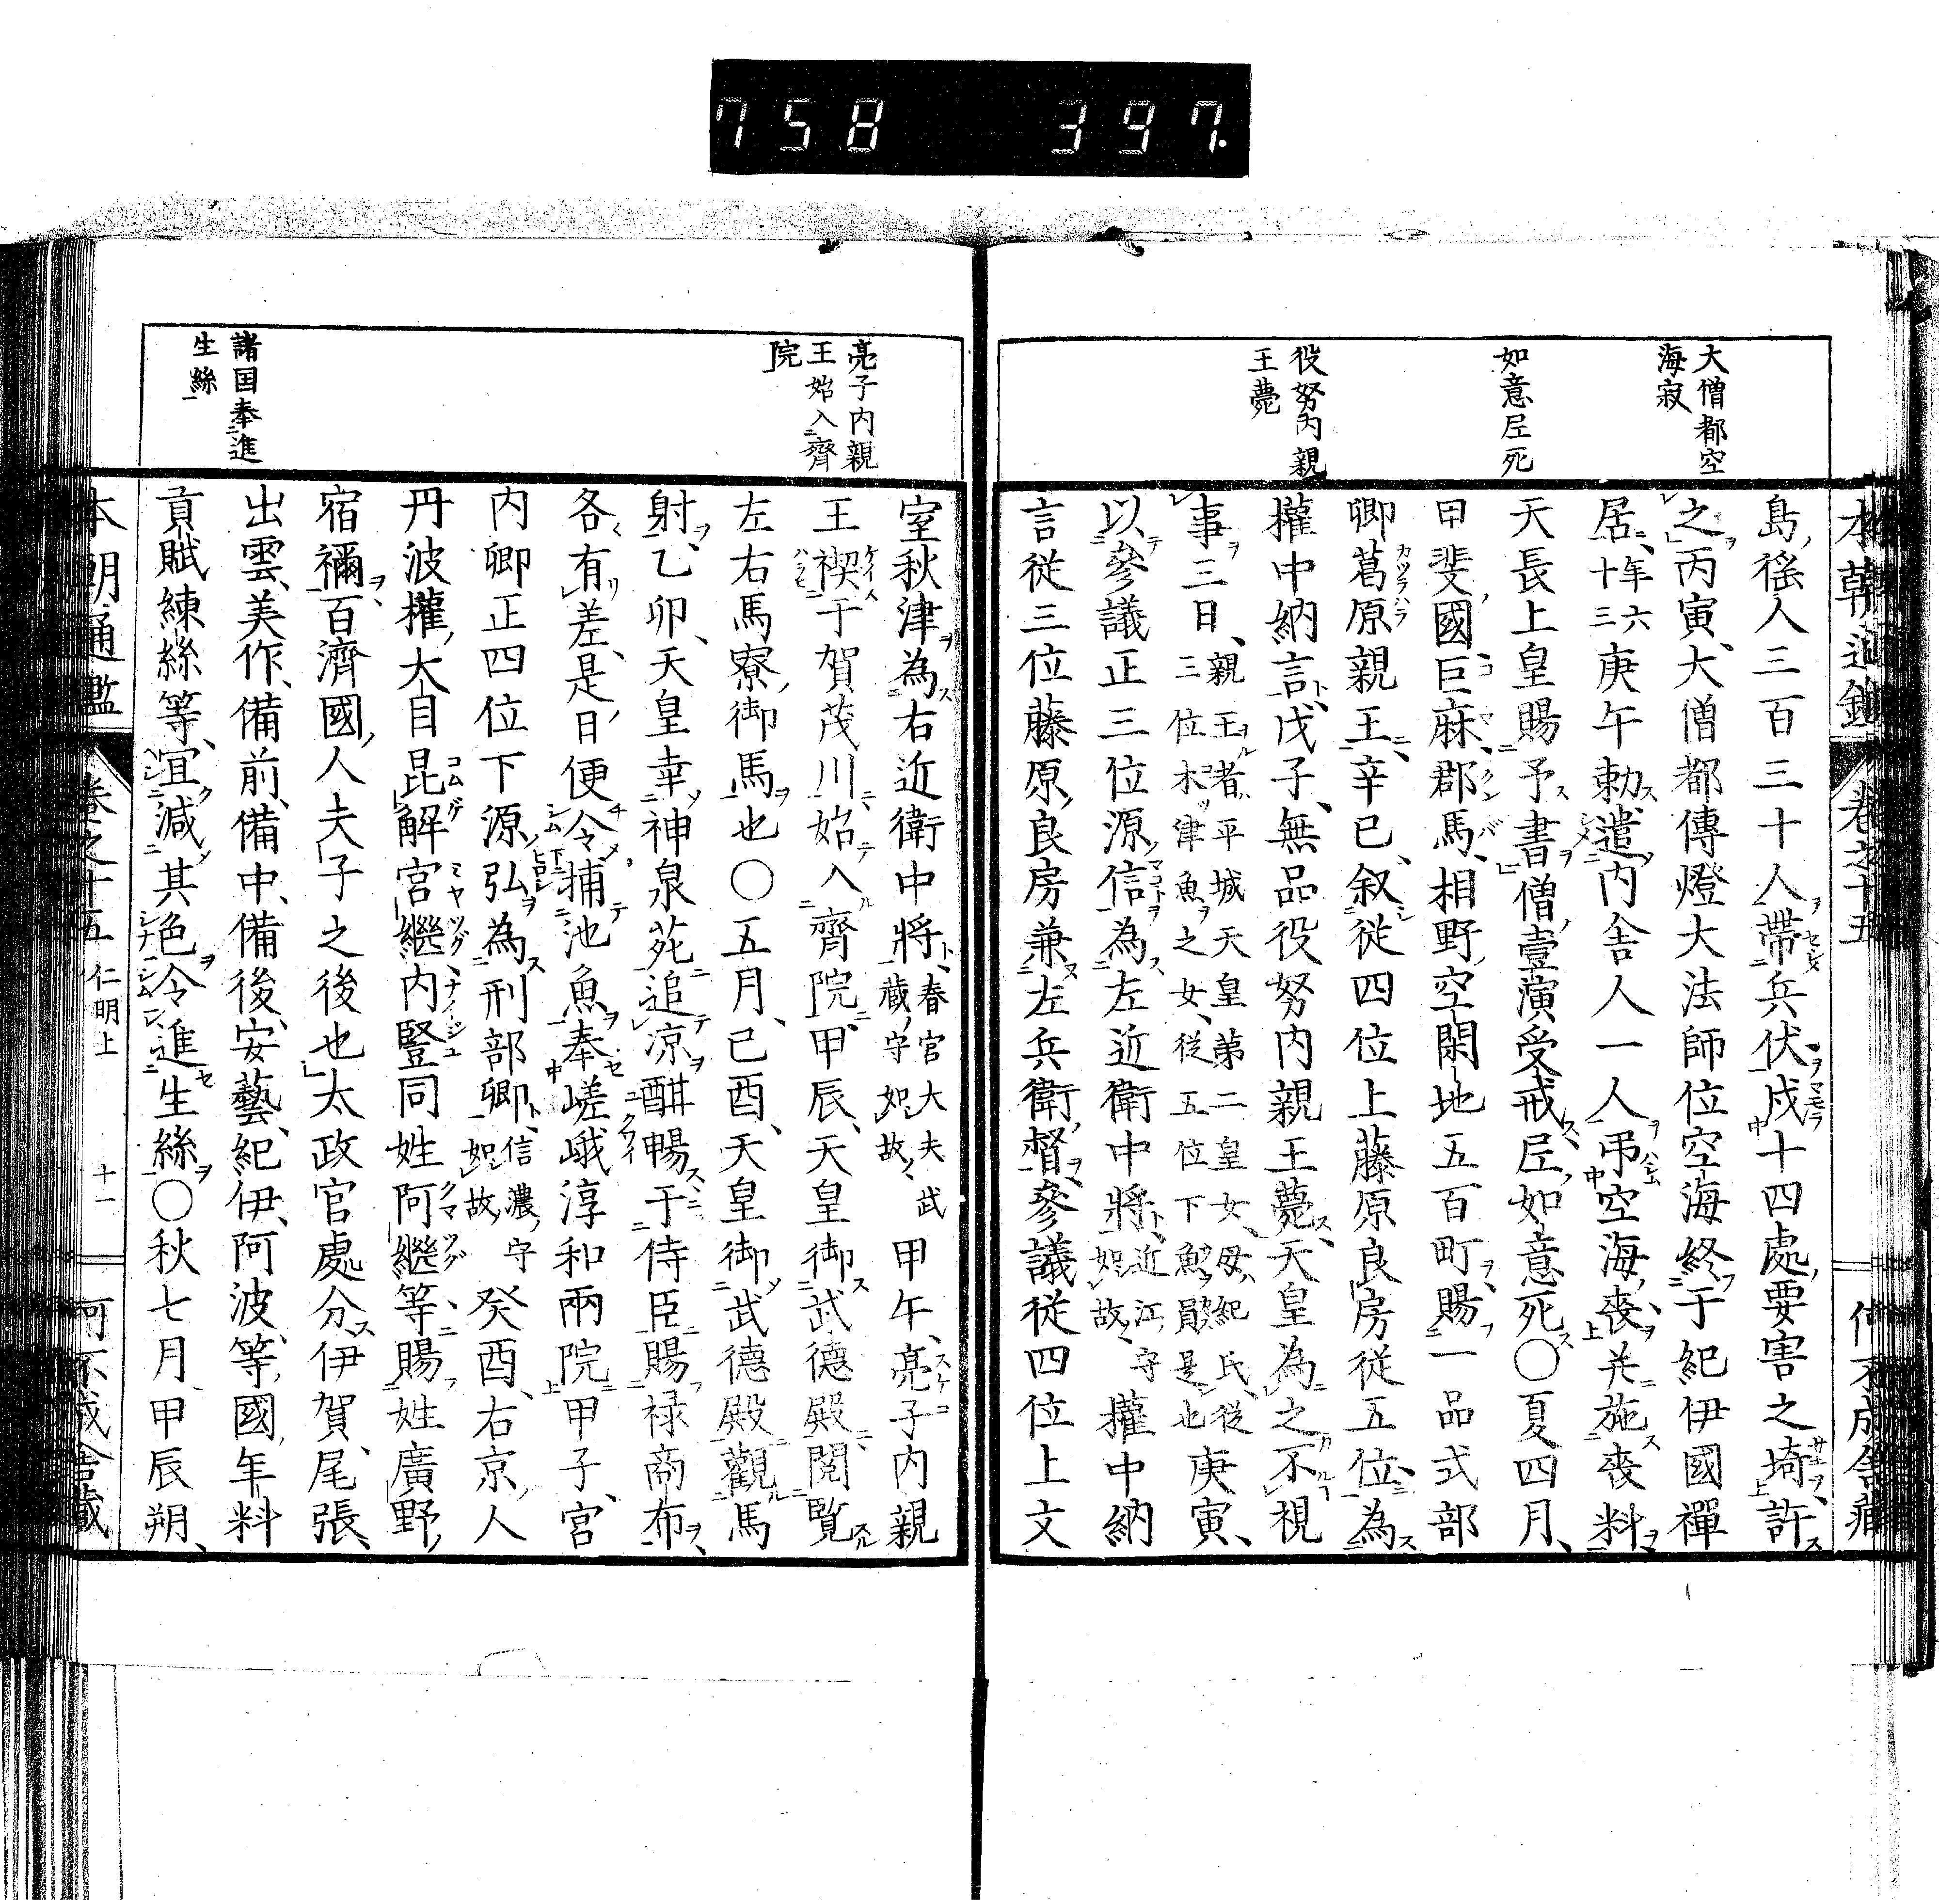 758 397.
大僧都空
海寂
如意尼死
役努內親
王薨
本朝通鑑 卷之十五
島徭人三百三十人帶兵伏戍十四處要害之埼許
之丙寅大僧都傳燈大法師位空海終于紀伊國禪
居年六十三庚午勅遣內舍人一人吊空海喪并施喪料
天長上皇賜予書僧壹演受戒尼如意死〇夏四月
甲斐國巨麻郡馬相野空閑地五百町賜一品式部
卿葛原親王辛巳叙從四位上藤原良房從五位為
權中納言戊子無品役努內親王薨天皇為之不視
事三日親王者平城天皇弟二皇女母紀氏從三位木津魚之女從五位下魚員是也庚寅
以參議正三位源信為左近衛中將近江守如故權中納
言從三位藤原良房兼左兵衛督參議從四位上文
亮子內親
王始入齊
院
諸国奉進
生絲
室秋津為右近衛中將春宮大夫武藏守如故甲午亮子內親
王禊于賀茂川始入齊院甲辰天皇御武德殿閱覽
左右馬寮御馬也〇五月己酉天皇御武德殿觀馬
射乙卯天皇幸神泉苑追凉酣暢于侍臣賜祿商布
各有差是日便令捕池魚奉嵯峨淳和兩院甲子宮
內卿正四位下源弘為刑部卿信濃守如故癸酉右京人
丹波權大目昆解宮繼內豎同姓阿繼等賜姓廣野
宿禰百濟國人夫子之後也太政官處分伊賀尾張
出雲美作備前備中備後安藝紀伊阿波等國年料
貢賦練絲等宜減其色令進生絲〇秋七月甲辰朔
本朝通鑑 卷之十五 仁明上 十一